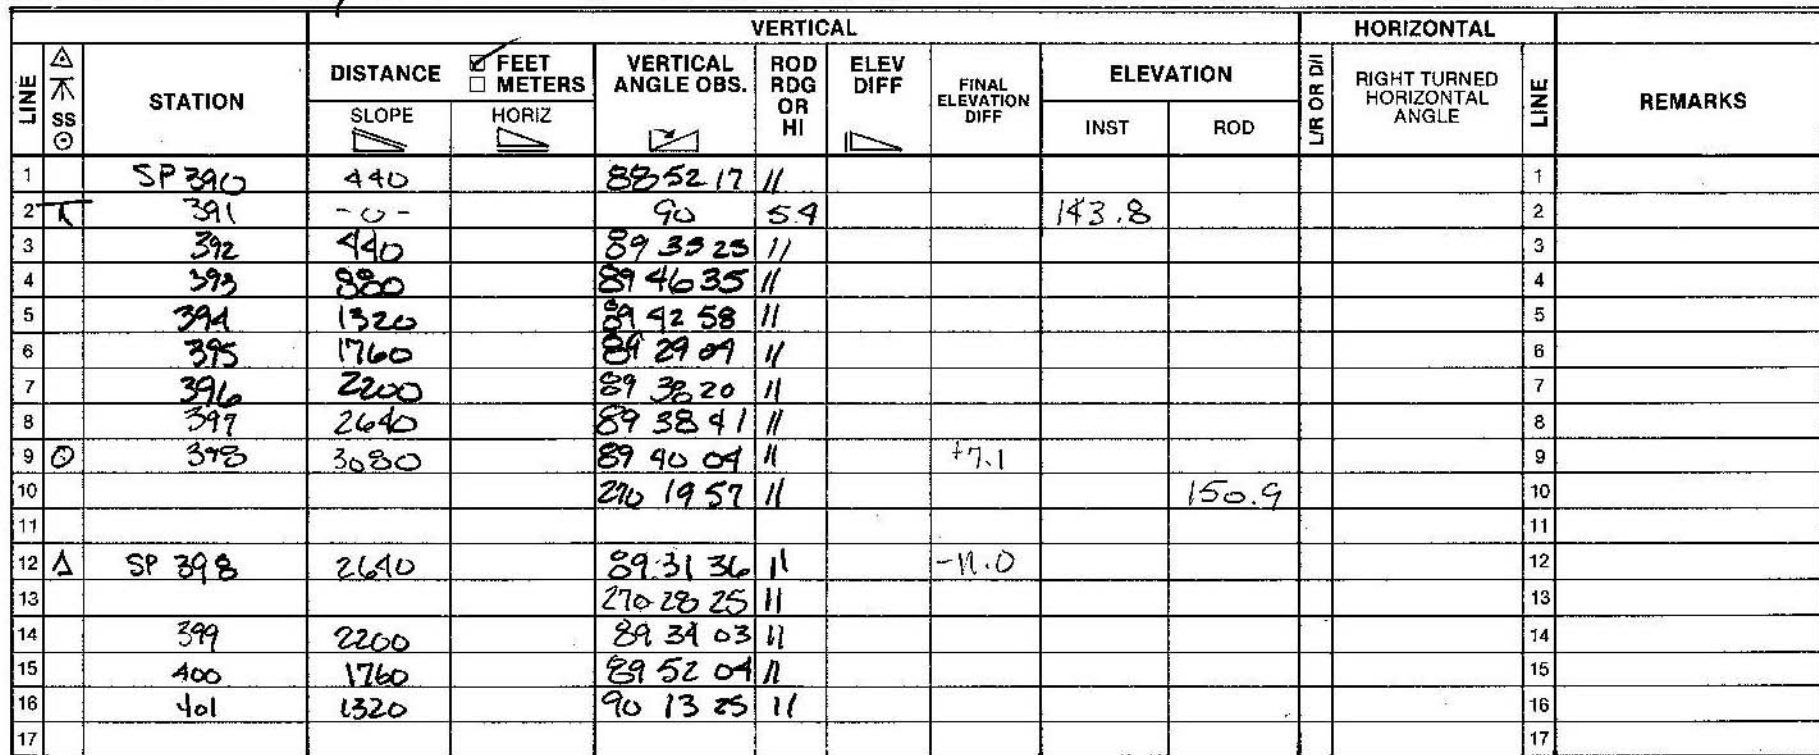 VERTICAL HORIZONTAL
LINE SS STATION DISTANCE FEET METERS VERTICAL ANGLE OBS. ROD RDG OR HI ELEV DIFF FINAL ELEVATION DIFF ELEVATION L/R OR D/I RIGHT TURNED HORIZONTAL ANGLE LINE REMARKS
SLOPE HORIZ INST ROD
1 SP 390 440 88 52 17 11 1
2 391 -0- 90 5.4 143.8 2
3 392 440 11 3
4 393 880 89 46 35 11 4
5 394 1320 89 42 58 11 5
6 395 1760 89 29 04 11 6
7 396 2200 89 38 20 11 7
8 397 2640 89 38 41 11 8
9 398 3080 89 40 04 11 +7.1 9
10 270 19 57 11 150.9 10
11 11
12 SP 398 2640 89 31 36 11 -11.0 12
13 270 28 25 11 13
14 399 2200 89 34 03 11 14
15 400 1760 89 52 04 11 15
16 401 1320 90 13 25 11 16
17 17